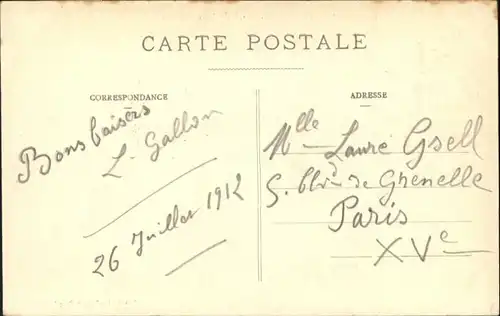 CARTE POSTALE
CORRESPONDANCE
Bons baisers
L. Gallon
26 Juillet 1912
ADRESSE
Mlle Laure Gsell
5. Blvd de Grenelle
Paris
XVe